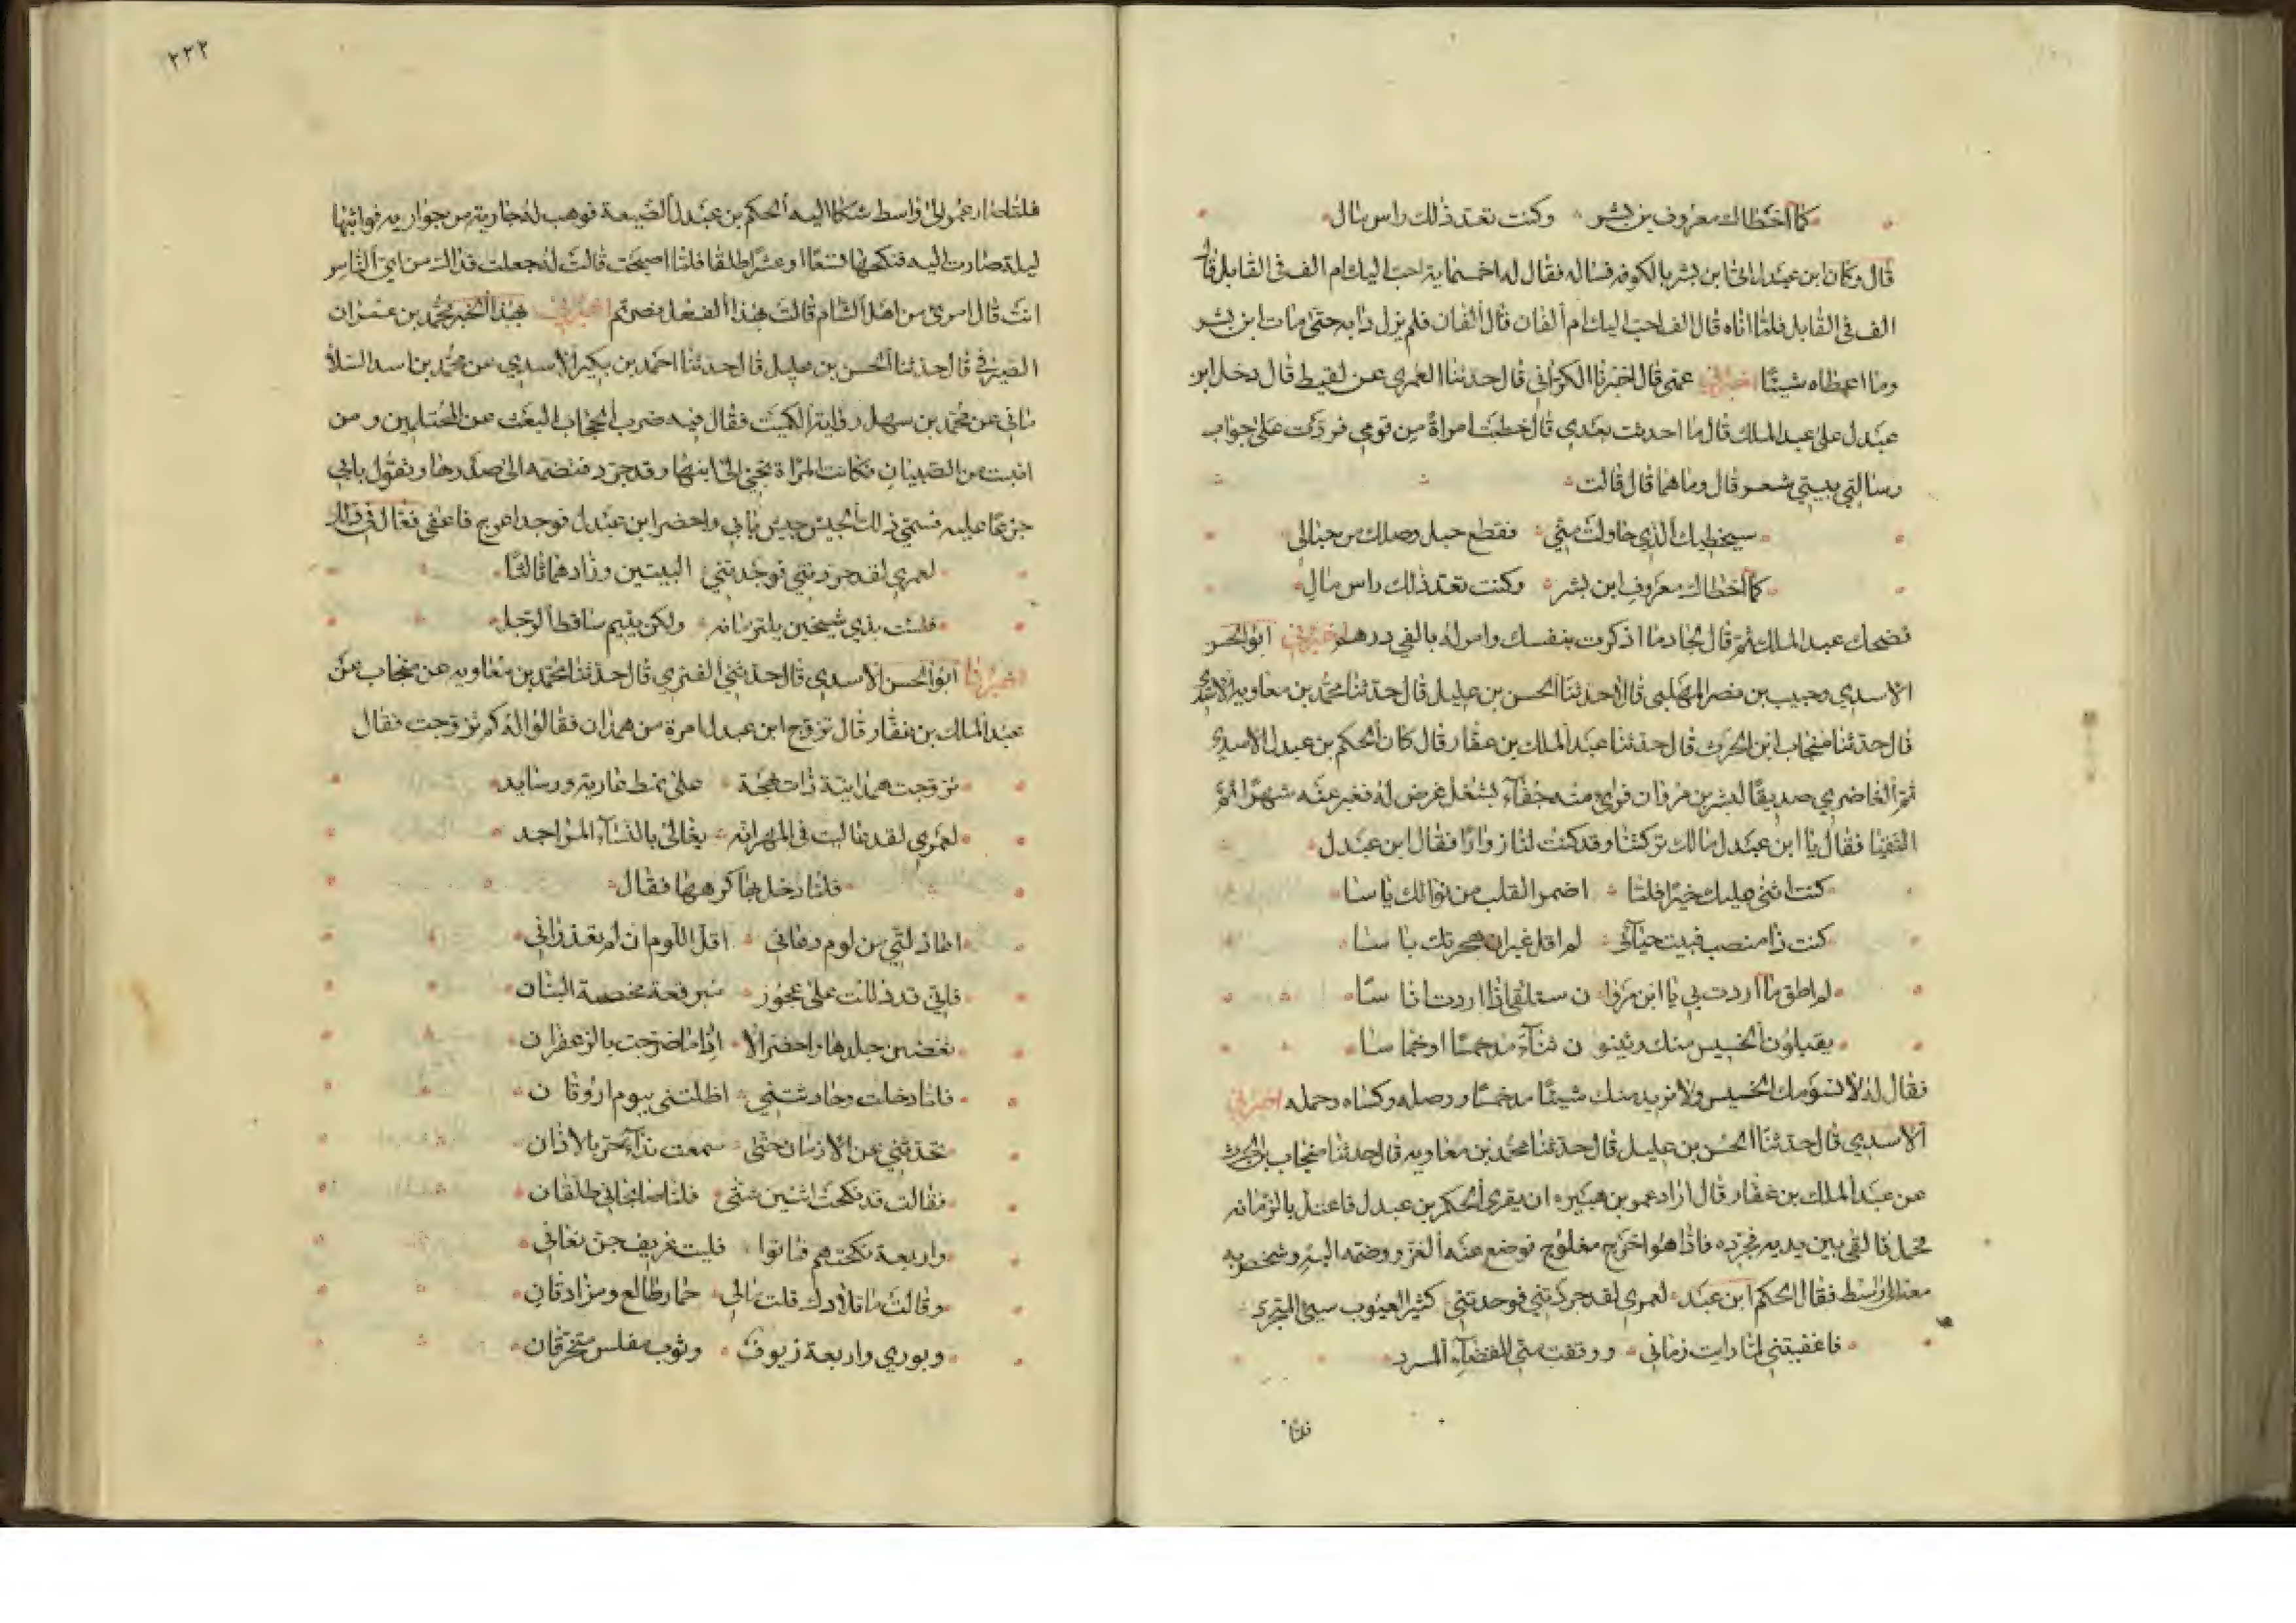 كما اخطاك معروف بن بشر وكنت تعتد ذلك راس مال
قال وكان ابن عبدل اتى ابن بشر بالكوفه فساله فقال له اخمسماية احب اليك ام الف في القابل قال
الف في القابل فلما اتاه قال الف احب اليك ام ألفان قال ألفان فلم يزل ذابه حتى مات ابن بشر
وما اعطاه شيئا اخبرني عمى قال اخبرنا الكرانى قال حدثنا العمرى عن لقيط قال دخل ابن
عبدل على عبد الملك قال ما احدثت بعدي قال خطبت امراة من قومي فردت على جواب
رسالتي ببيتي شعر قال وما هما قال قالت
سيخطيك الذي حاولت مني فقطع حبل وصلك من حبالى
كما اخطاك معروف ابن بشر وكنت تعتد ذلك راس مال
فضحك عبد الملك ثم قال لجاد ما اذكرت بنفسك وامر له بالفي درهم اخبرني ابو الحسن
الاسدي وحبيب بن نصر المهلبى قالا حدثنا الحسن بن عليل قال حدثنا محمد بن معاويه الاسدى
قال حدثنا منجاب ابن الحرث قال حدثنا عبد الملك بن عفار قال كان الحكم بن عبدل الاسدي
ثم الغاضري صديقا لبشر بن مروان فراى منه جفاء لشغل عرض له فغبر عنه شهرا ثم
التقيا فقال يا ابن عبدل مالك تركتنا وقد كنت لنا زوارا فقال ابن عبدل
كنت اثنى عليك خيرا فلما اضمر القلب من نوالك ياسا
كنت ذا منصب قبيت حيائى لم اقل غير ان هجرتك باسا
لم اطق ما اردت بي يا ابن مروا ن ستلقى اذا اردت اناسا
يقبلون الخسيس منك ويثنو ن ثناء مدخمسا اوخماسا
فقال له لا نسومك الخسيس ولا نريد منك شيئا مدخمسا ووصله وكساه وحمله اخبرني
الاسدي قال حدثنا الحسن بن عليل قال حدثنا محمد بن معاويه قال حدثنا منجاب بن الحرث
عن عبد الملك بن عفار قال اراد عمر بن هبيره ان يغزى الحكم بن عبدل فاعتل بالزمانه
فحمل فالقى بين يديه فجرده فاذا هو اعرج مفلوج فوضع عنه الغزو وضمه اليه وشخص به
معه الى واسط فقال الحكم ابن عبدل لعمرى لقد جردتني فوجدتني كثير العيوب سيئ المتجرد
فاعفيتني لما رايت زمانتي ووفقت مني للقضاء المسدد
فلما
٢٢٢
فلما صار عمر الى واسط شكا اليه الحكم بن عبدل الضيعة فوهب له جارية من جواريه فواثبها
ليلة صارت اليه فنكحها تسعا او عشرا طلقا فلما اصبحت قالت له جعلت فداك من اي الناس
انت قال امرؤ من اهل الشام قالت بهذا الفعل نصرتم اخبرني بهذا الخبر محمد بن عمران
الصيرفي قال حدثنا الحسن بن عليل قال حدثنا احمد بن بكير الاسدي عن محمد بن اسد السلا
مانى عن محمد بن سهل رواية الكميت فقال فيه ضرب الحجاج البعث عن المحتلمين ومن
انبت من الصبيان فكانت المراة تجئ الى ابنها وقد جرد فتضمه الى صدرها وتقول بابي
جزعا عليه فسمي ذلك الجيش جيش بابي واحضر ابن عبدل فوجد اعرج فاعفى فقال في ذلك
لعمري لقد جردتني فوجدتني البيتين وزادهما ثالثا
فلست بذي شيخين يلتزمانه ولكن يتيم ساقط الرجل
اخبرنا ابو الحسن الاسدي قال حدثني العنزي قال حدثنا محمد بن معاويه عن منجاب عن
عبد الملك بن عفار قال تزوج ابن عبدل امرة من همذان فقالوا له كم تزوجت فقال
تزوجت همدانية ذات بهجة على نمط عارية ووسايد
لعمري لقد غاليت في المهر انه يغالى بالنساء المواجد
فلما دخل بها كرهها فقال
اعاذلتي من لوم دعاني اقل اللوم ان لم تعذراني
فاني قد دللت على عجوز مبرقعة مخضبة البنان
تغضن جلدها واخضر الا اذا ما ضرجت بالزعفران
فلما دخلت وحادثتني اظلتنى بيوم اروقا ن
تحدثني عن الازمان حتى سمعت نداء حر بالاذان
فقالت قد نكحت اثنين شتى فلما صاحباني طلقان
واربعة نكحتهم فماتوا فليت عريف جن نعاني
وقالت ما تلادك قلت مالي حمار ظالع ومزادقان
وبوري واربعة زيوف وثوب مفلس متخرقان